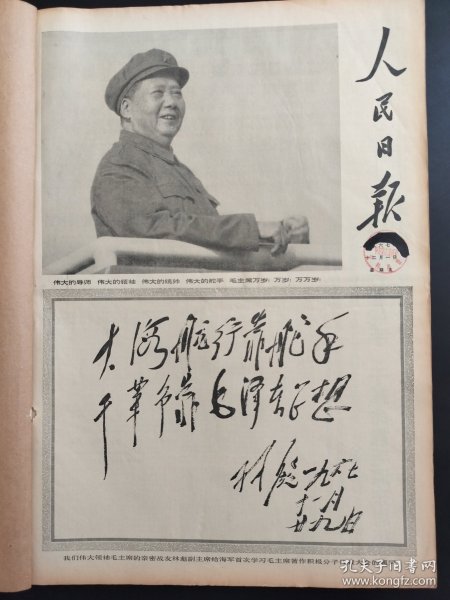 人民日報
十二月一日
伟大的导师 伟大的领袖 伟大的统帅 伟大的舵手 毛主席万岁！万岁！万万岁！
大海航行靠舵手
干革命靠毛泽东思想
林彪 一九六七
十一月
廿九日
我们伟大领袖毛主席的亲密战友林彪副主席给海军首次学习毛主席著作积极分子
孔夫子旧书网